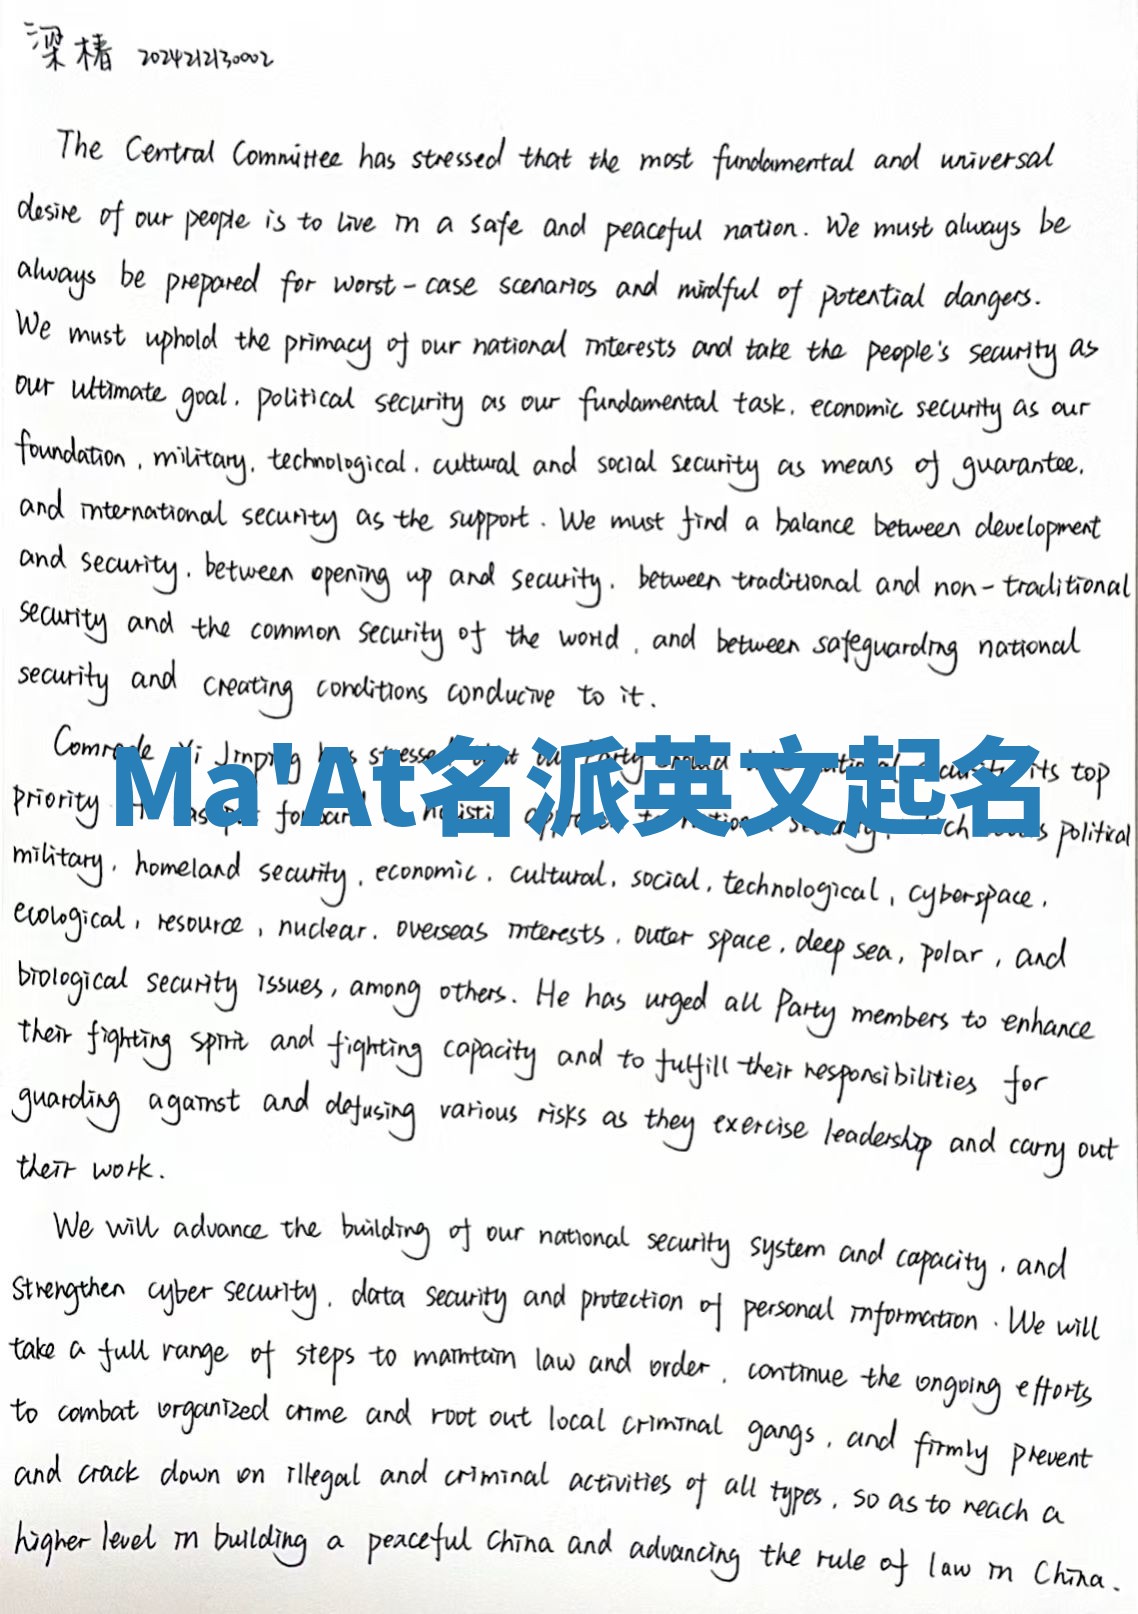 梁椿 2024212130002
The Central Committee has stressed that the most fundamental and universal
desire of our people is to live in a safe and peaceful nation. We must always be
always be prepared for worst-case scenarios and mindful of potential dangers.
We must uphold the primacy of our national interests and take the people's security as
our ultimate goal, political security as our fundamental task, economic security as our
foundation, military, technological, cultural and social security as means of guarantee,
and international security as the support. We must find a balance between development
and security, between opening up and security, between traditional and non-traditional
security and the common security of the world, and between safeguarding national
security and creating conditions conducive to it.
Comrade Xi Jinping has stressed that our Party should its top
Ma'At名派英文起名
priority political
military, homeland security, economic, cultural, social, technological, cyberspace,
ecological, resource, nuclear, overseas interests, outer space, deep sea, polar, and
biological security issues, among others. He has urged all Party members to enhance
their fighting spirit and fighting capacity and to fulfill their responsibilities for
guarding against and defusing various risks as they exercise leadership and carry out
their work.
We will advance the building of our national security system and capacity, and
strengthen cyber security, data security and protection of personal information. We will
take a full range of steps to maintain law and order, continue the ongoing efforts
to combat organized crime and root out local criminal gangs, and firmly prevent
and crack down on illegal and criminal activities of all types, so as to reach a
higher level in building a peaceful China and advancing the rule of law in China.